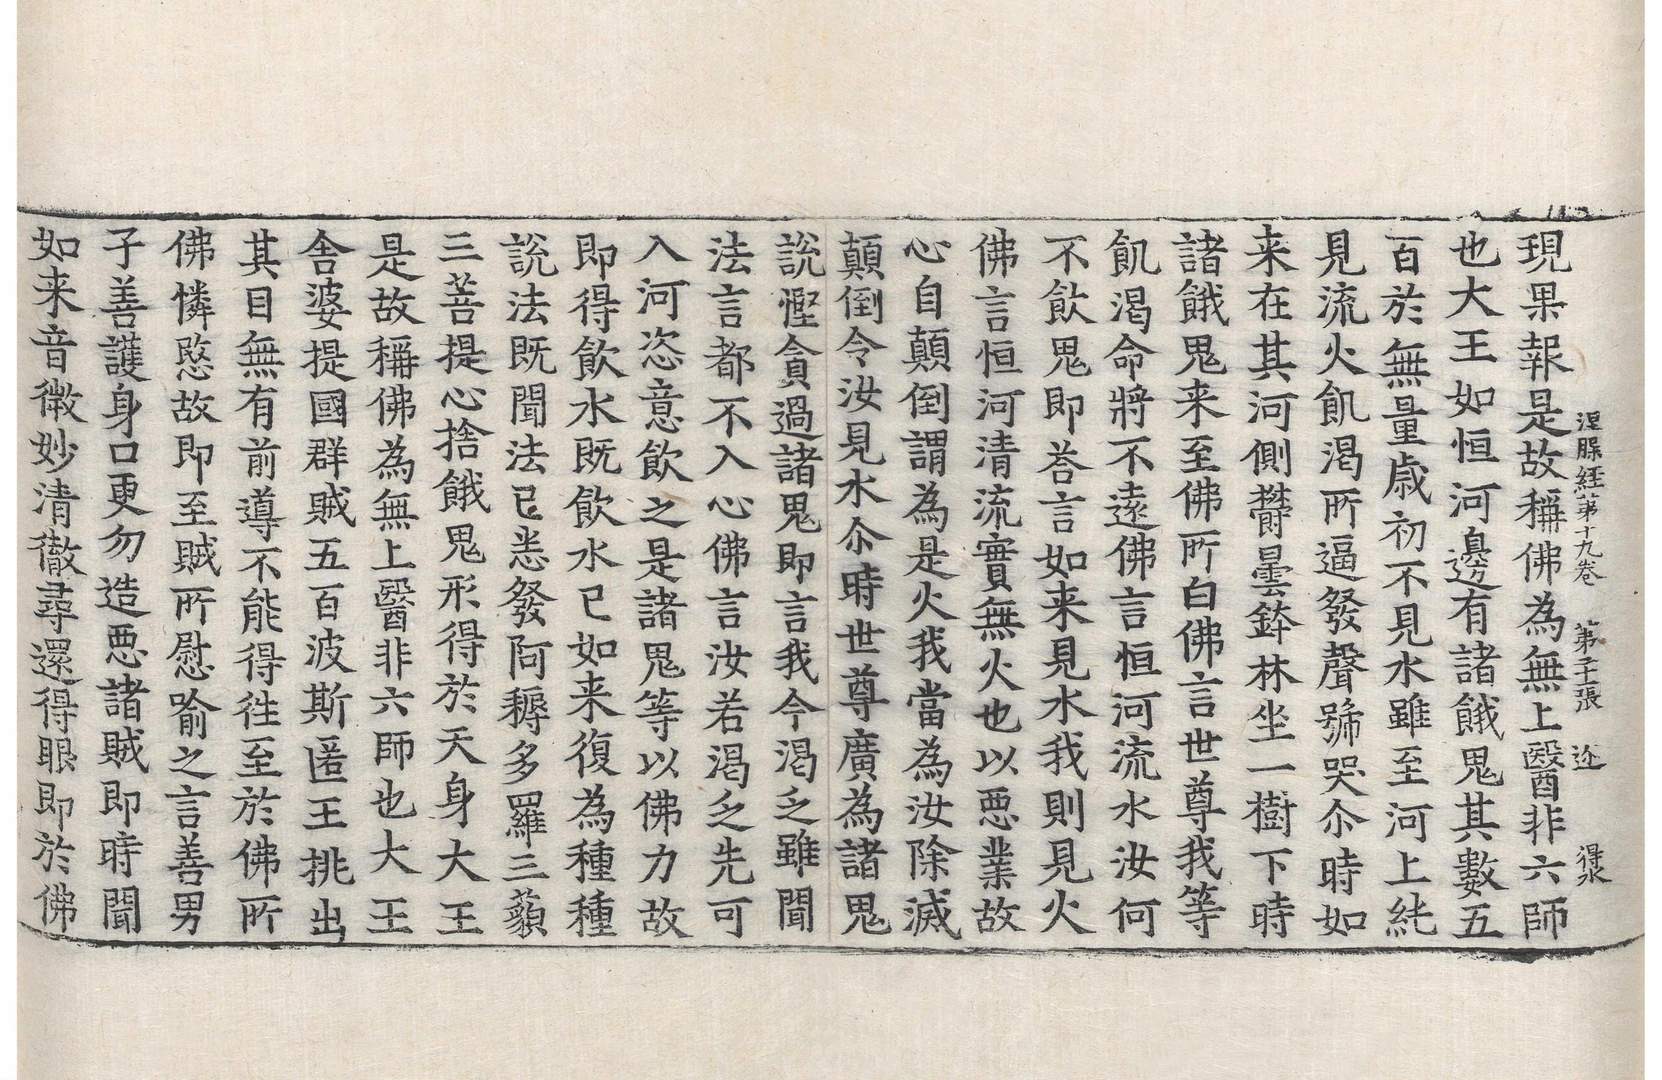 涅槃經第十九卷 第子張 迩 得冰
現果報是故稱佛為無上醫非六師
也大王如恒河邊有諸餓鬼其數五
百於無量歲初不見水雖至河上純
見流火飢渴所逼發聲號哭尒時如
来在其河側欝曇鉢林坐一樹下時
諸餓鬼来至佛所白佛言世尊我等
飢渴命將不遠佛言恒河流水汝何
不飲鬼即荅言如来見水我則見火
佛言恒河清流實無火也以惡業故
心自顛倒謂為是火我當為汝除滅
顛倒令汝見水尒時世尊廣為諸鬼
說慳貪過諸鬼即言我今渴乏雖聞
法言都不入心佛言汝若渴乏先可
入河恣意飲之是諸鬼等以佛力故
即得飲水既飲水已如来復為種種
說法既聞法已悉發阿耨多羅三藐
三菩提心捨餓鬼形得於天身大王
是故稱佛為無上醫非六師也大王
舍婆提國群賊五百波斯匿王挑出
其目無有前導不能得往至於佛所
佛憐愍故即至賊所慰喻之言善男
子善護身口更勿造惡諸賊即時聞
如来音微妙清徹尋還得眼即於佛